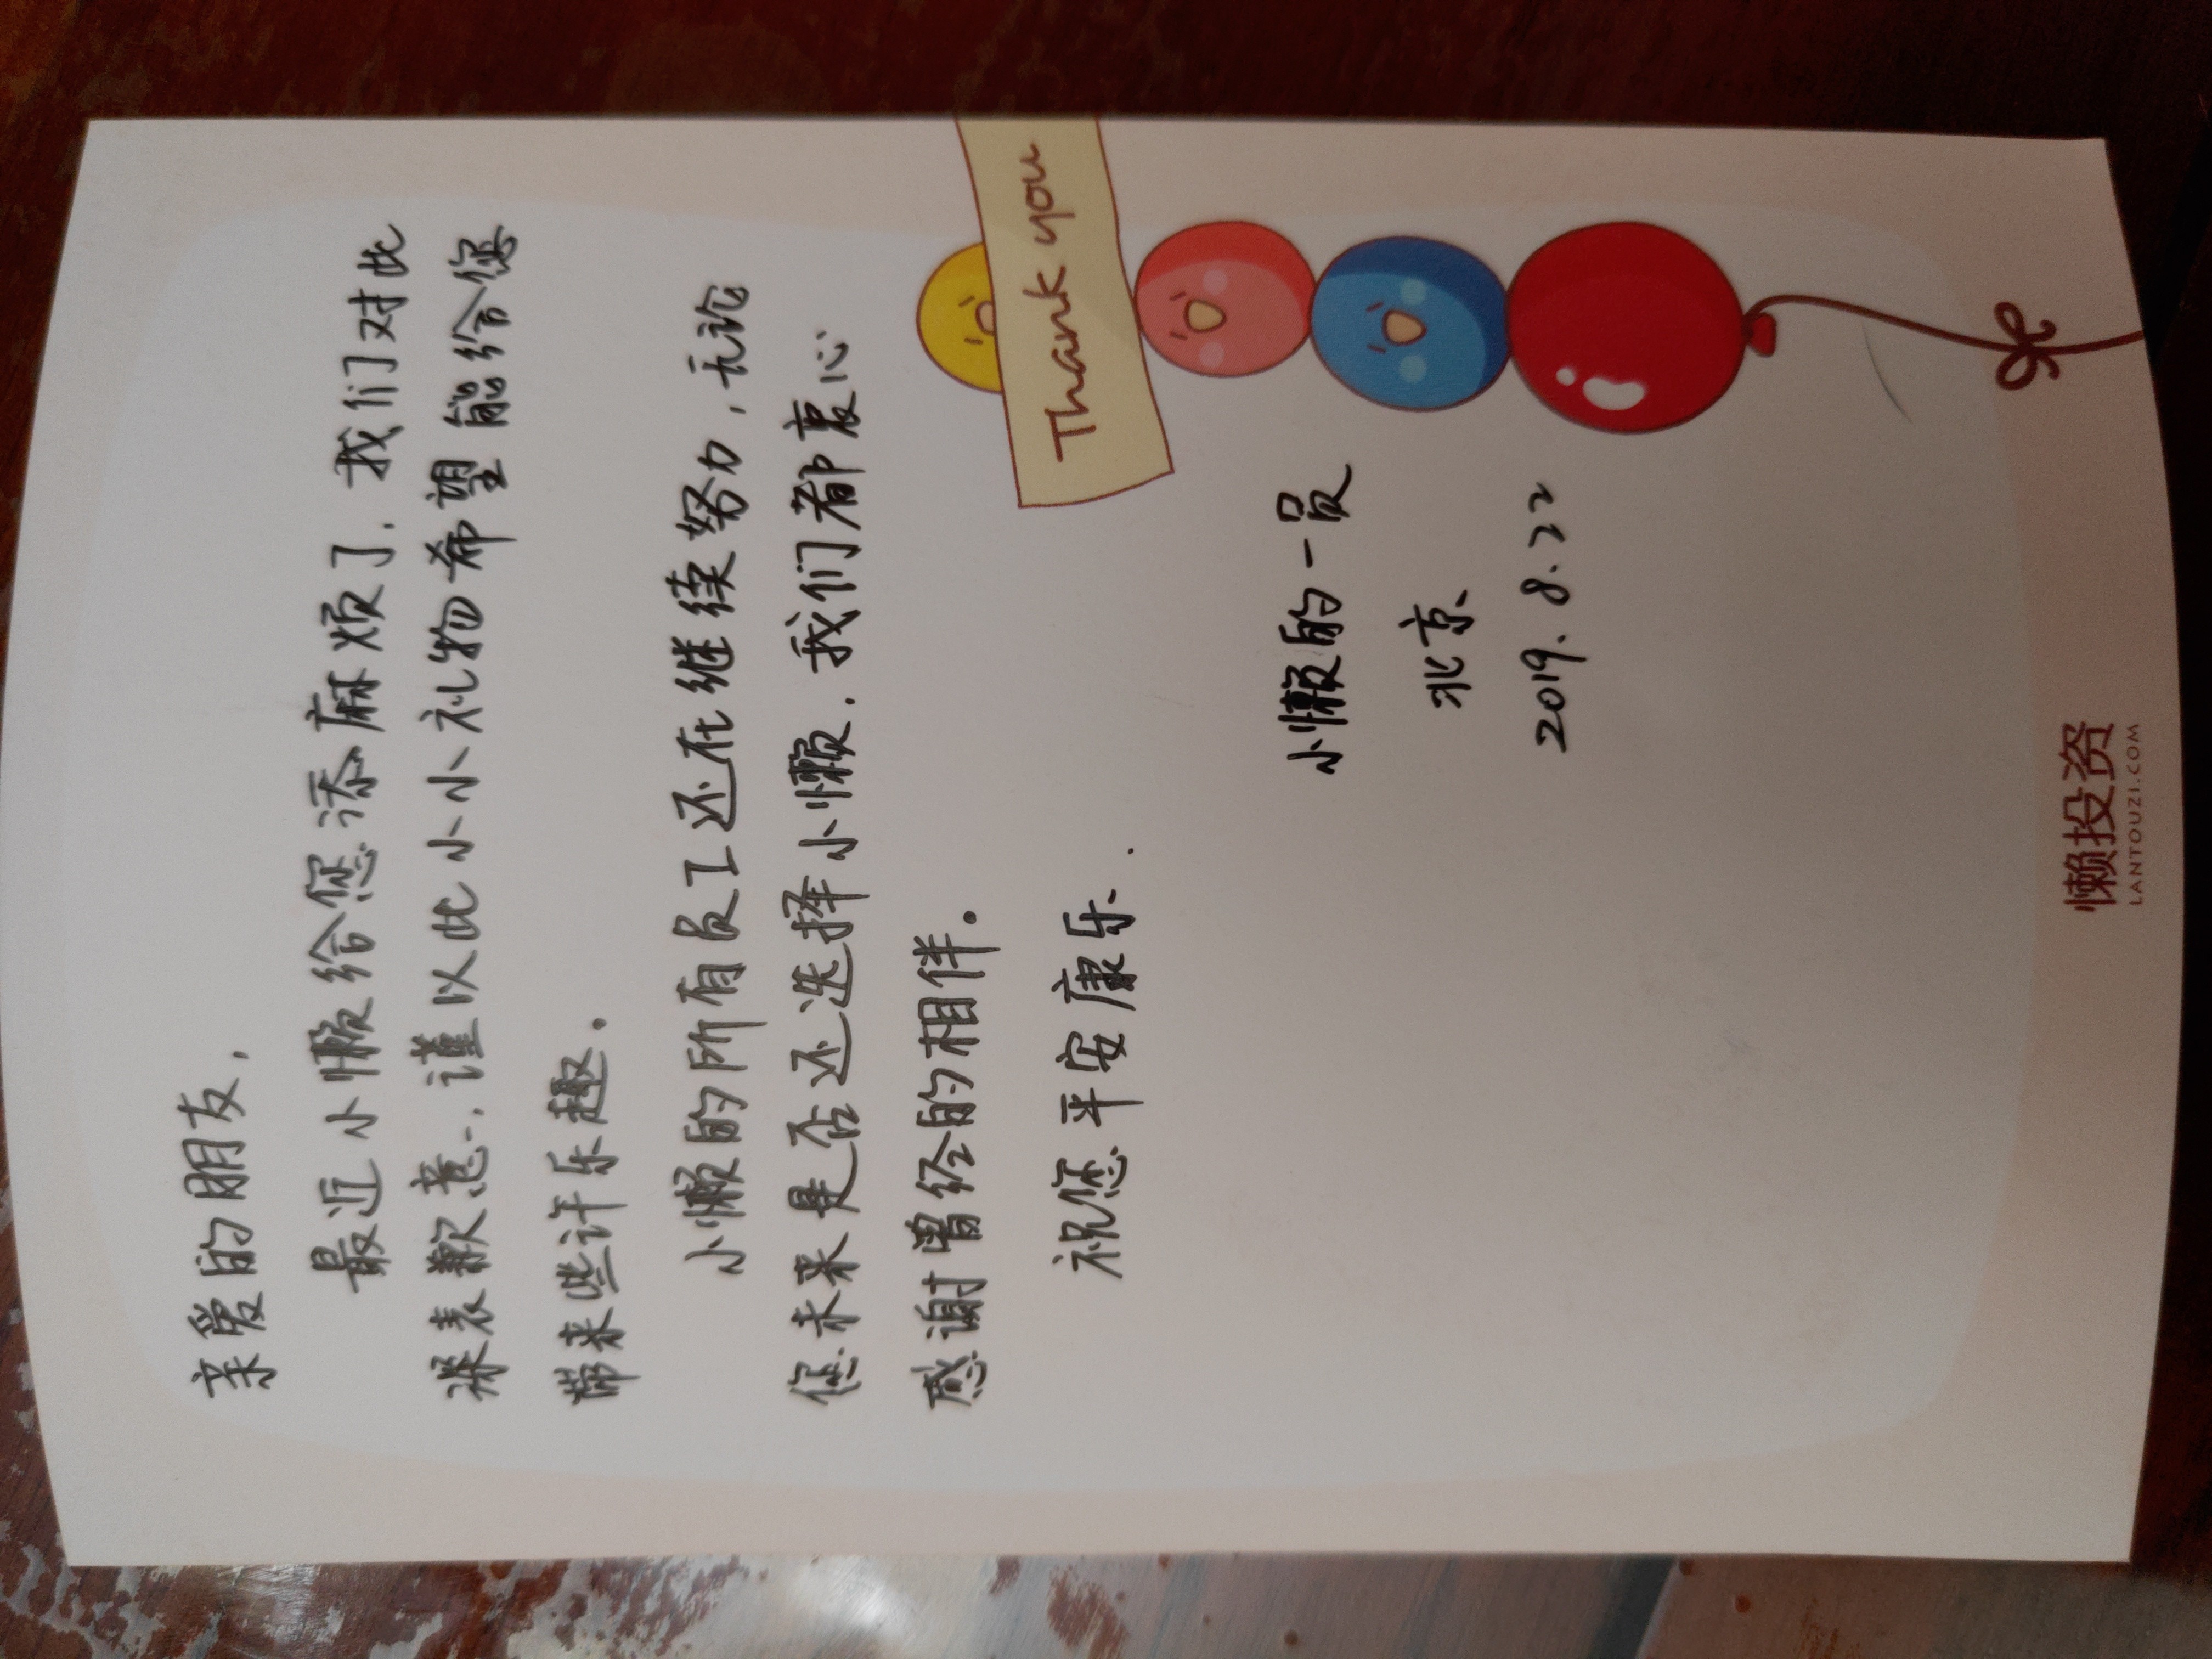 亲爱的朋友,
最近小懒给您添麻烦了,我们对此
深表歉意,谨以此小小礼物希望能给您
带来些许乐趣。
小懒的所有员工还在继续努力,无论
您未来是否还选择小懒,我们都衷心
感谢曾经的相伴。
祝您平安康乐.
Thank you
小懒的一员
北京
2019.8.22
懒投资
LANTOUZI.COM